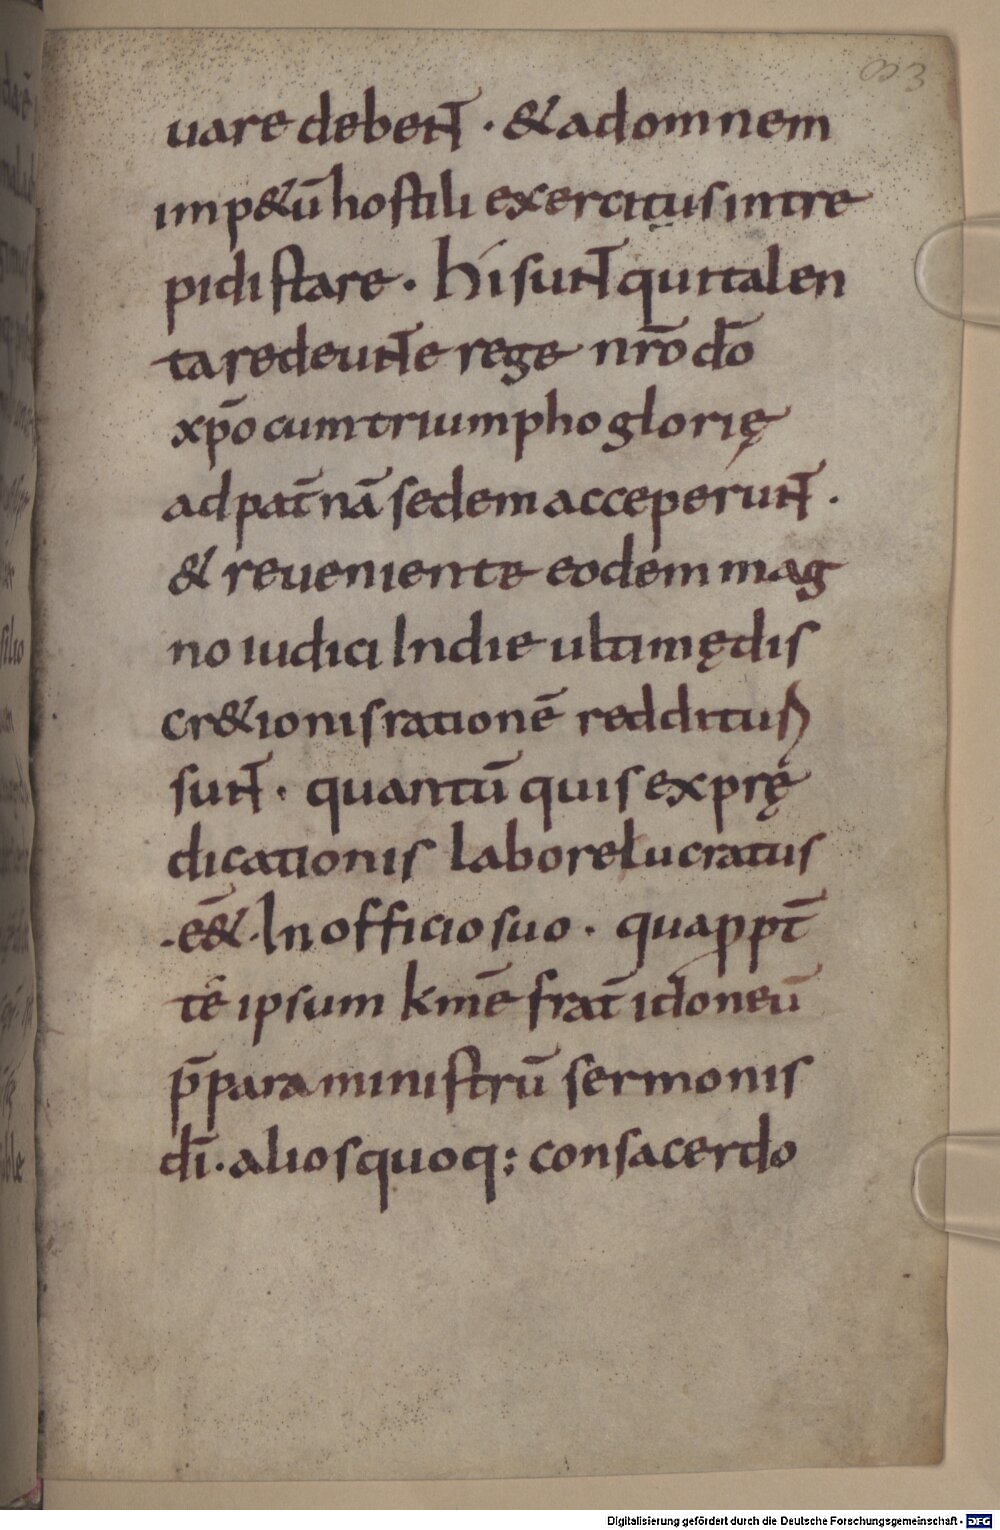 93
uare debent · & ad omnem
imp&ū hostili exercitus intre
pidi stare · hi sunt qui talen
ta redeunte rege nr̄o dō
xp̄o cum triumpho glorię
ad pat̄nā sedem acceperunt ·
& reueniente eodem mag
no iudici In die ultimę dis
cr&ionis rationē reddituri
sunt · quantū quis ex prę
dicationis labore lucratus
· ē& · In officio suo · quappt̄
tē ipsum km̄e frat̄ idoneū
p̄para ministrū sermonis
dī · aliosquoq; consacerdo
Digitalisierung gefördert durch die Deutsche Forschungsgemeinschaft - DFG